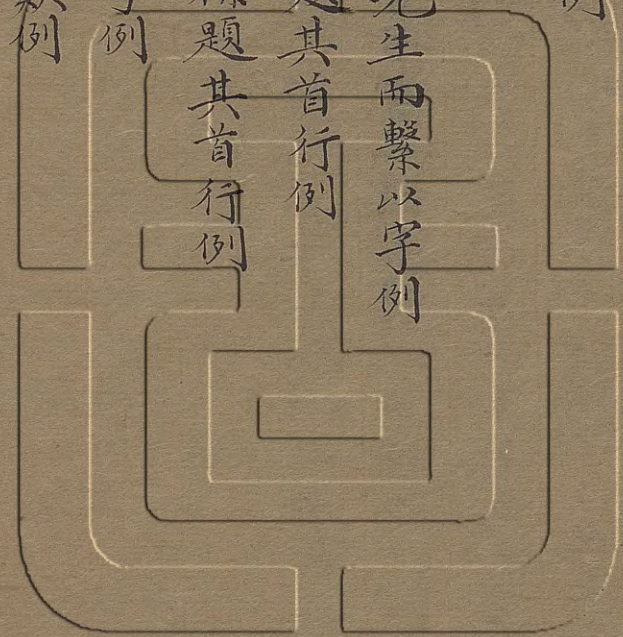 例
先生而繫以字例
題其首行例
題其首行例
字例
例